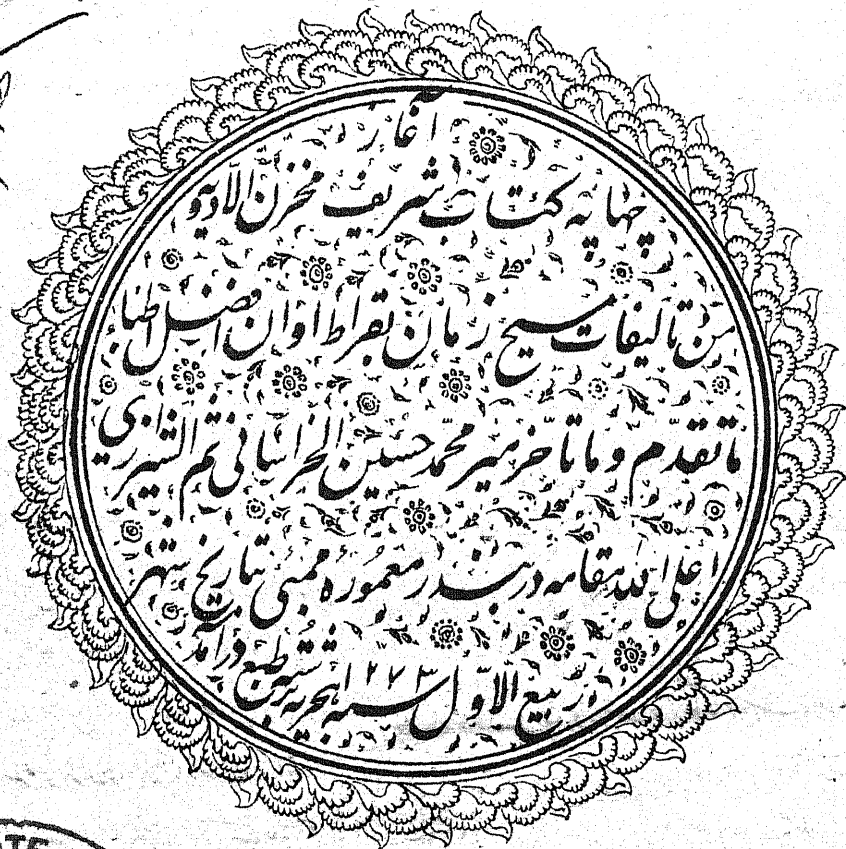 آغاز
چهاپه کتاب شریف مخزن الادویه
من تالیفات مسیح زمان بقراط اوان افضل اطباء
ما تقدم و ما تأخر میر محمد حسین الخراسانی ثم الشیرازی
اعلی الله مقامه در بندر معمورهٔ ممبئی بتاریخ شهر
ربیع الاول سنه ۱۲۷۳ هجریه بزینت طبع درآمد
TE